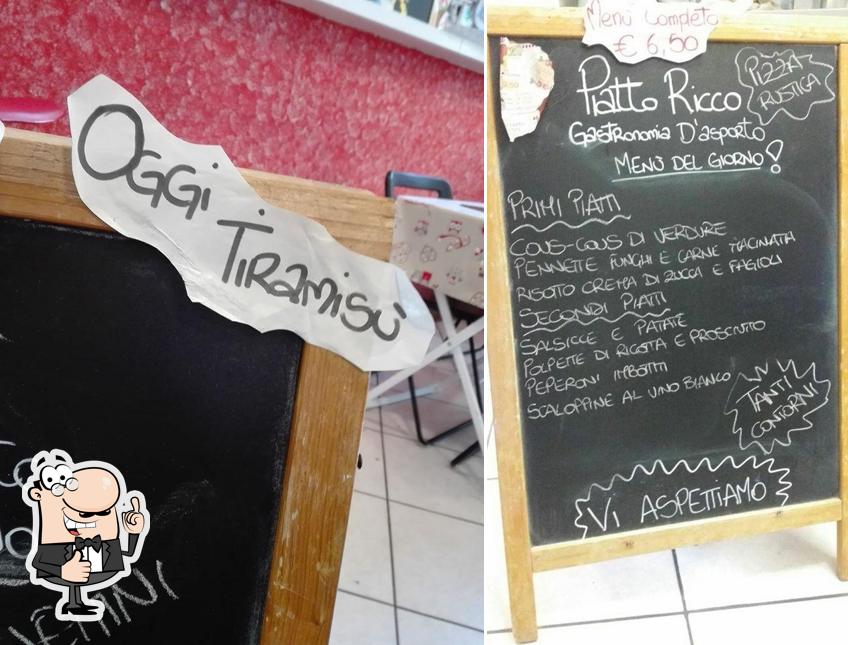 OGGi
TiRamisù
Menù Completo
€ 6,50
PiZZA
RUSTICA
PiATTO RICCO
Gastronomia D'asporto
MENÙ DEL GIORNO!
PRIMI PIATTI
COUS-COUS DI VERDURE
PENNETTE FUNGHI E CARNE MACINATA
RISOTTO CREMA DI ZUCCA E FAGIOLI
SECONDI PIATTI
SALSICCE E PATATE
POLPETTE DI RICOTTA E PROSCIUTTO
PEPERONI IMBOTTITI
SCALOPPINE AL VINO BIANCO
TANTI
CONTORNI
Vi ASPETTIAMO